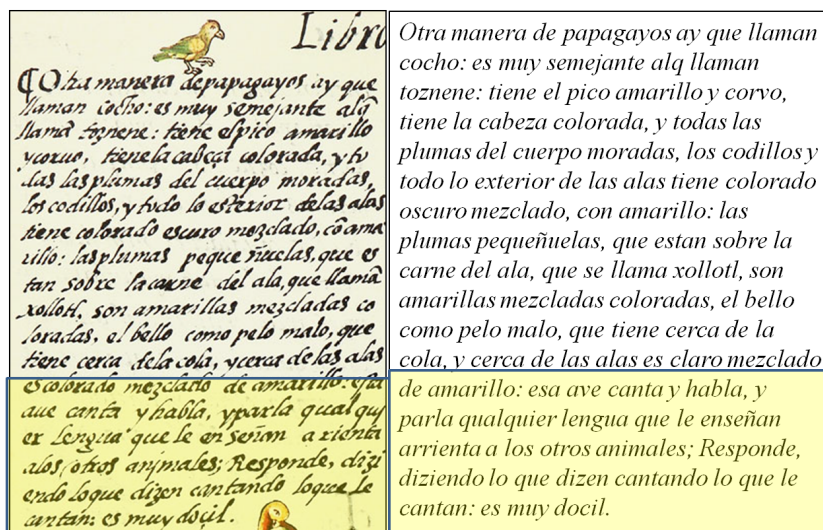 Libro
¶ Otra manera de papagayos ay que
llaman cocho: es muy semejante alq̃
llamã toznene: tiene el pico amarillo
ycoruo, tiene la cabeça colorada, y to
das las plumas del cuerpo moradas,
los codillos, y todo lo esterior delas alas
tiene colorado escuro mezclado, cõ ama
rillo: las plumas peque ñuelas, que es
tan sobre la carne del ala, que llamã
xollotl, son amarillas mezcladas co
loradas, el bello como pelo malo, que
tiene cerca dela cola, y cerca de las alas
es colorado mezclado de amarillo: esta
aue canta y habla, y parla qual qui
er lengua que le enseñan a rienta
alos otros animales; Responde, dizi
endo loque dizen cantando loque le
cantan: es muy docil.
Otra manera de papagayos ay que llaman
cocho: es muy semejante alq llaman
toznene: tiene el pico amarillo y corvo,
tiene la cabeza colorada, y todas las
plumas del cuerpo moradas, los codillos y
todo lo exterior de las alas tiene colorado
oscuro mezclado, con amarillo: las
plumas pequeñuelas, que estan sobre la
carne del ala, que se llama xollotl, son
amarillas mezcladas coloradas, el bello
como pelo malo, que tiene cerca de la
cola, y cerca de las alas es claro mezclado
de amarillo: esa ave canta y habla, y
parla qualquier lengua que le enseñan
arrienta a los otros animales; Responde,
diziendo lo que dizen cantando lo que le
cantan: es muy docil.